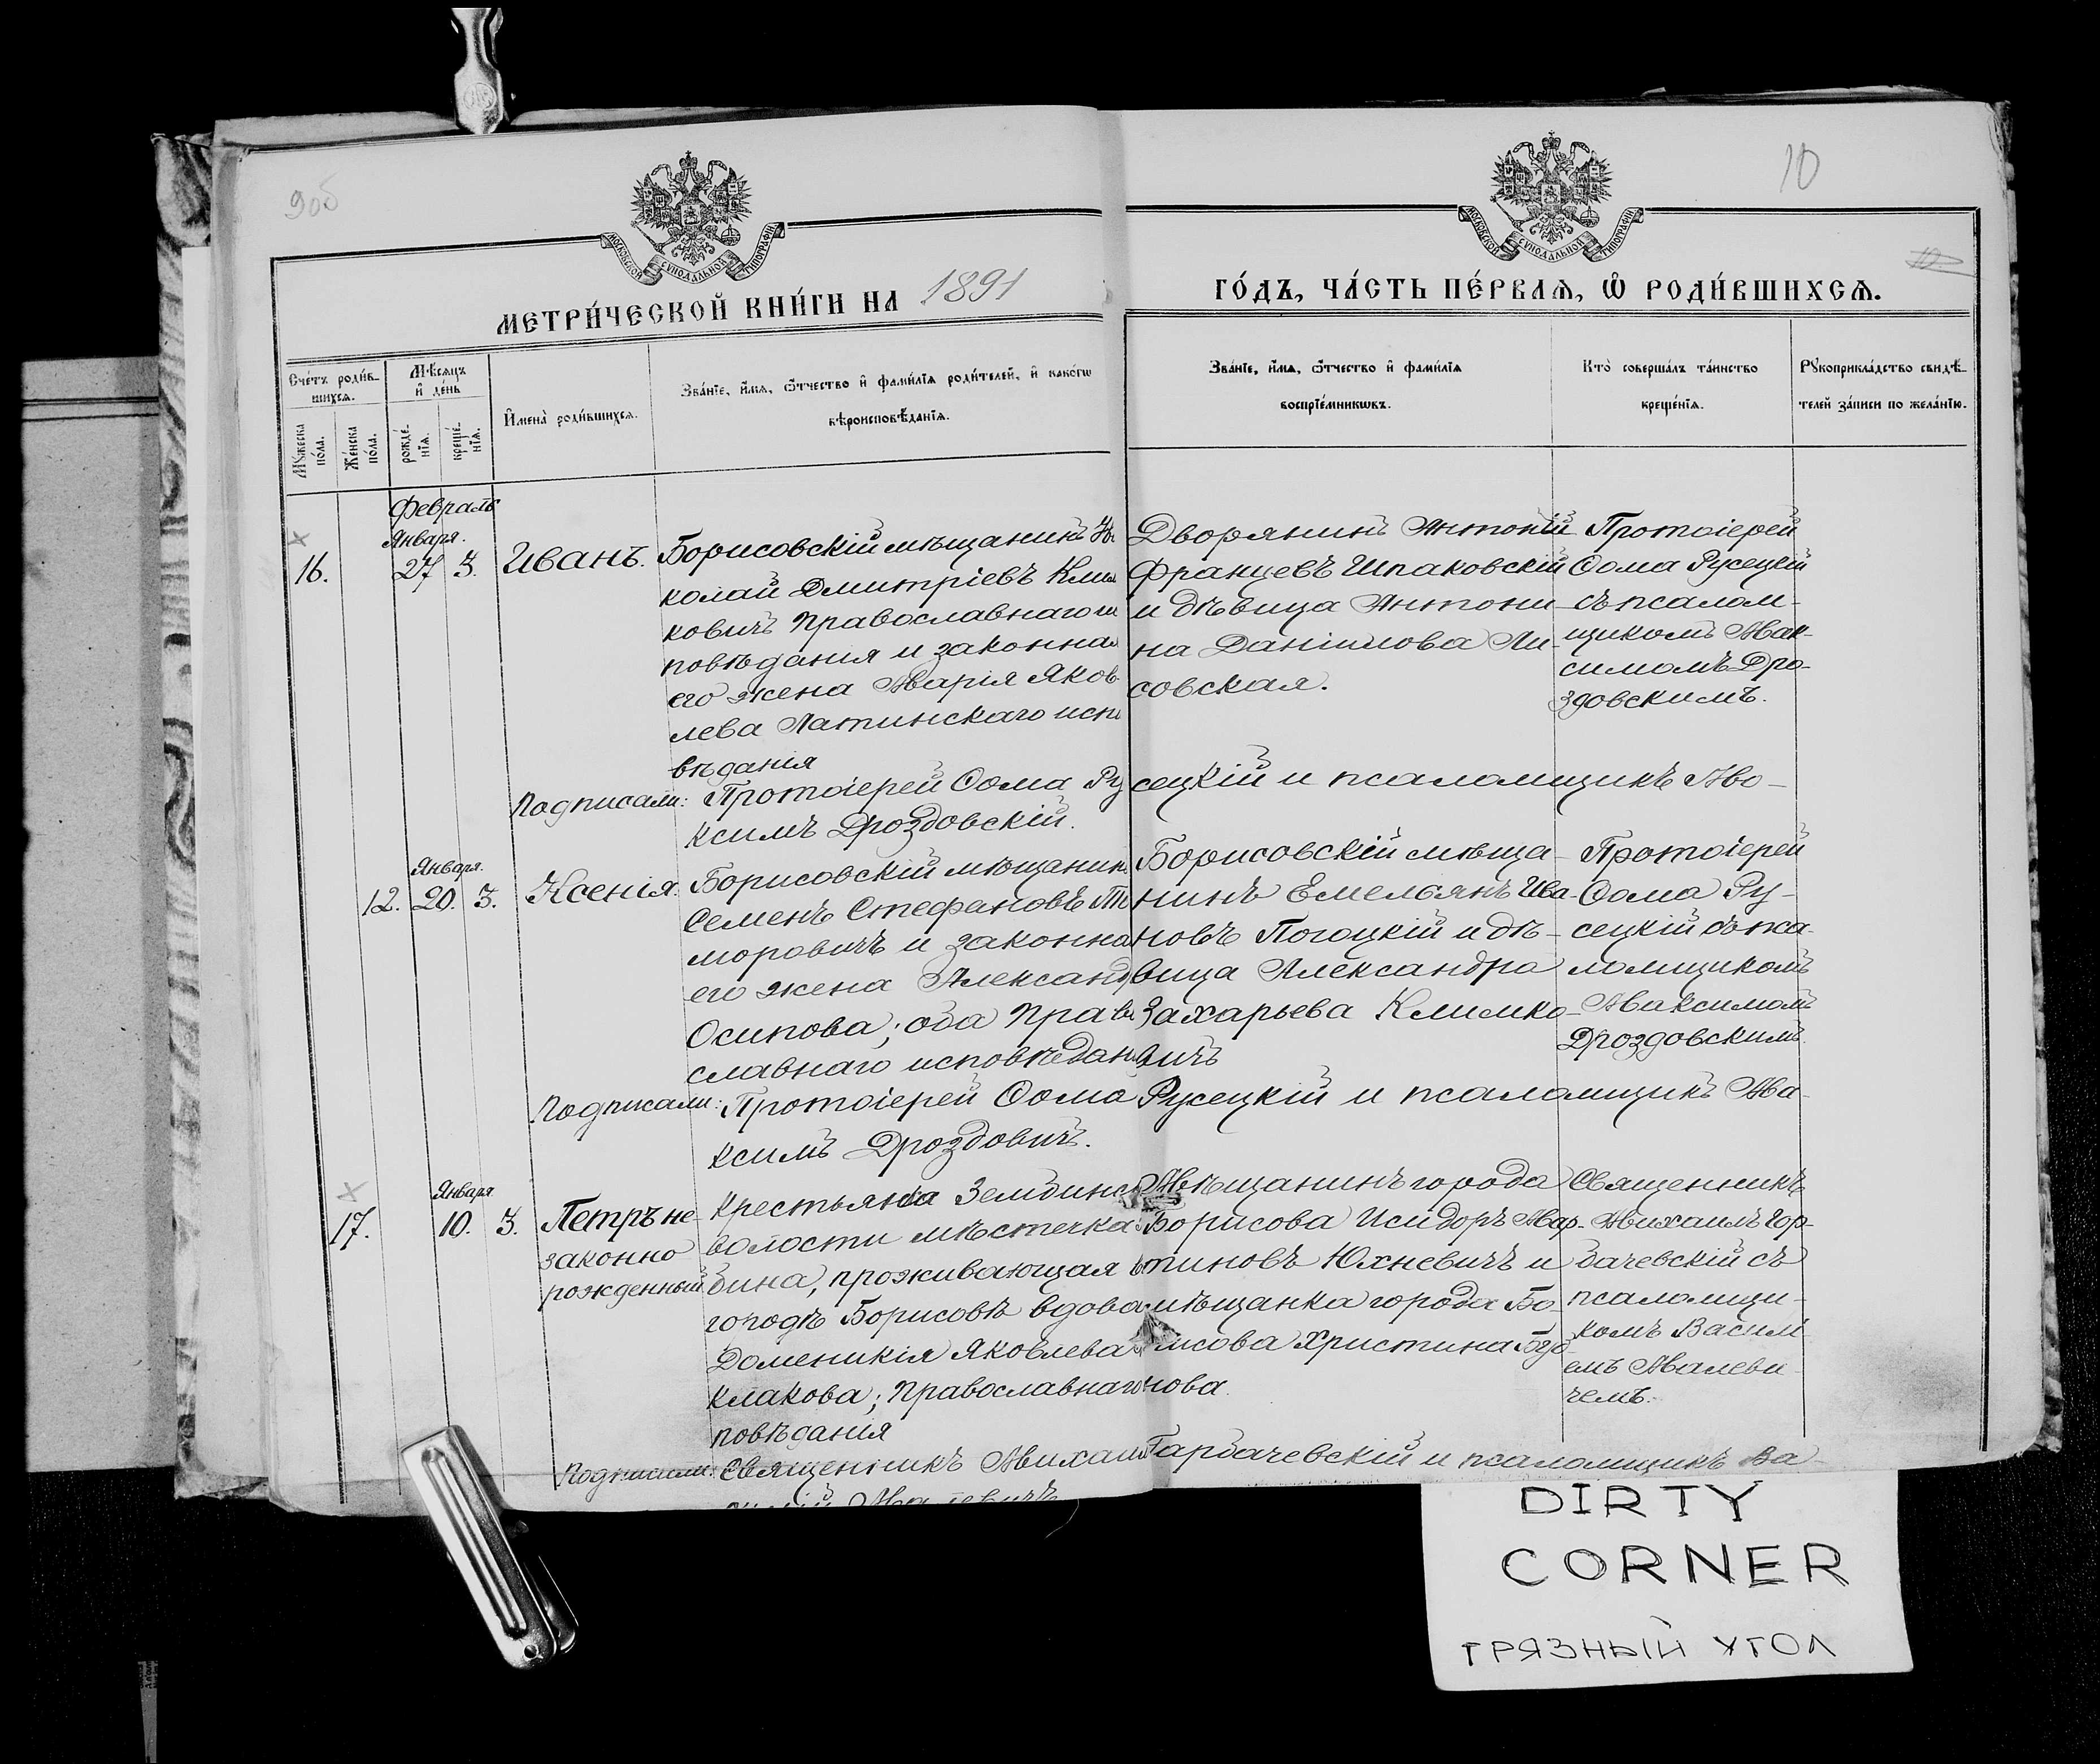 9об
10
10
МОСКОВСКОЙ СѴНОДАЛЬНОЙ ТИПОГРАФІИ
МОСКОВСКОЙ СѴНОДАЛЬНОЙ ТИПОГРАФІИ
МЕТРИ́ЧЕСКОЙ КНИ́ГИ НА 1891
ГО́ДЪ, ЧА́СТЬ ПЕ́РВАѦ, Ѡ҆ РОДИ́ВШИХСѦ.
Сче́тъ роди́в-
шихсѧ.
Мѣ́сѧцъ
и҆ де́нь
Мꙋ́жеска
по́ла.
Же́нска
по́ла.
рожде́-
нїѧ.
креще́-
нїѧ.
И҆мена̀ роди́вшихсѧ.
Зва́нїе, и҆́мѧ, ѻ҆́тчество и҆ фами́лїѧ роди́телей, и҆ како́гѡ
вѣроисповѣ́данїѧ.
Зва́нїе, и҆́мѧ, ѻ҆́тчество и҆ фами́лїѧ
воспрїе́мникѡвъ.
Кто̀ соверша́лъ та́инство
креще́нїѧ.
Рꙋкоприкла́дство свидѣ́-
телей за́писи по жела́нїю.
Февраль
Января.
16. 27 3. Иванъ.
Борисовскій мѣщанинъ Ни
колай Дмитріевъ Клим
ковичъ Православнаго ис
повѣданія и законная
его жена Марія Яков
лева Латинскаго испо
вѣданія
Дворянинъ Антоній
Францевъ Шпаковскій
и дѣвица Антони-
на Даніилова Ли-
совская.
Протоіерей
Ѳома Русецкій
съ псалом-
щикомъ Мак-
симомъ Дро-
здовскимъ.
Подписали: Протоіерей Ѳома Русецкій и псаломщикъ Ма-
ксимъ Дроздовскій.
Января.
12. 20. 3. Ксенія.
Борисовскій мѣщанин
Семенъ Стефановъ Ти
моровичъ и законна
его жена Александ
Осипова; оба Право
славнаго исповѣдан
Борисовскій мѣща-
нинъ Емельянъ Ива-
новъ Погоцкій и дѣ-
вица Александра
Захарьева Климко-
вичъ
Протоіерей
Ѳома Ру-
сецкій съ пса-
ломщикомъ
Максимомъ
Дроздовскимъ.
Подписали: Протоіерей Ѳома Русецкій и псаломщикъ Ма-
ксимъ Дроздовичъ.
Января
17. 10. 3. Петръ не-
законно
рожденный
Крестьянка Зембинс
волости мѣстечка
бина, проживающая въ
городѣ Борисовѣ вдова
Доменикія Яковлева
Клакова; Православнаго
повѣданія
Мѣщанинъ города
Борисова Исидоръ Мар-
тиновъ Юхневичъ и
мѣщанка города Бо-
рисова Христина
нова.
Священникъ
Михаилъ Гор-
бачевскій съ
псаломщи-
комъ Василі-
емъ Малеви-
чемъ.
Подписали: Священникъ Михаилъ Гарбачевскій и псаломщикъ Ва-
DIRTY
CORNER
ГРЯЗНЫЙ УГОЛ